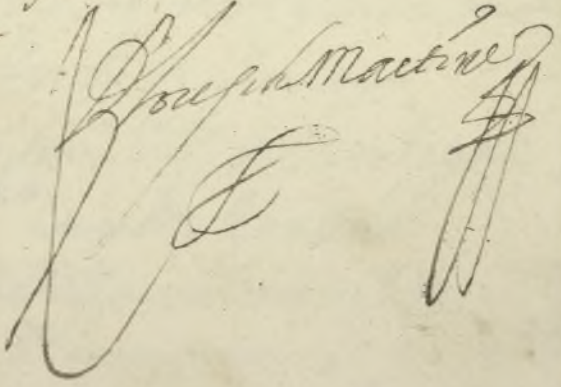 D Joseph Martinez